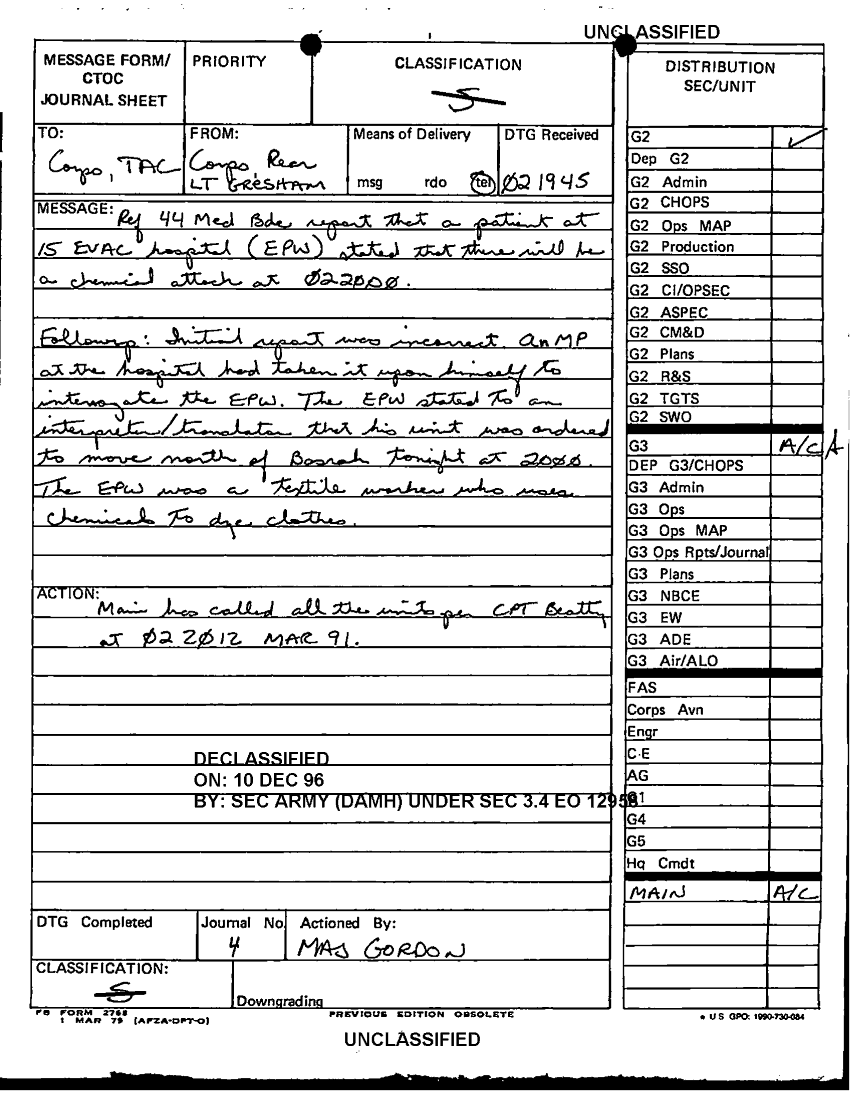 UNCLASSIFIED
MESSAGE FORM/
CTOC
JOURNAL SHEET
PRIORITY
CLASSIFICATION
S
DISTRIBUTION
SEC/UNIT
TO:
Corps, TAC
FROM:
Corps, Rear
LT GRESHAM
Means of Delivery
msg rdo tel
DTG Received
021945
MESSAGE: Ref 44 Med Bde report that a patient at
15 EVAC hospital (EPW) stated that there will be
a chemical attack at 022000.
Followup: Initial report was incorrect. An MP
at the hospital had taken it upon himself to
interrogate the EPW. The EPW stated to an
interpreter/translator that his unit was ordered
to move north of Basrah tonight at 2000.
The EPW was a textile worker who uses
chemicals to dye clothes.
ACTION:
Main has called all the units per CPT Beatty
at 022012 MAR 91.
DECLASSIFIED
ON: 10 DEC 96
BY: SEC ARMY (DAMH) UNDER SEC 3.4 EO 12958
DTG Completed
Journal No.
4
Actioned By:
MAJ GORDON
CLASSIFICATION:
S
Downgrading
FB FORM 2768
1 MAR 79 (AFZA-DPT-O)
PREVIOUS EDITION OBSOLETE
G2
Dep G2
G2 Admin
G2 CHOPS
G2 Ops MAP
G2 Production
G2 SSO
G2 CI/OPSEC
G2 ASPEC
G2 CM&D
G2 Plans
G2 R&S
G2 TGTS
G2 SWO
G3 A/CA
DEP G3/CHOPS
G3 Admin
G3 Ops
G3 Ops MAP
G3 Ops Rpts/Journal
G3 Plans
G3 NBCE
G3 EW
G3 ADE
G3 Air/ALO
FAS
Corps Avn
Engr
C-E
AG
G1
G4
G5
Hq Cmdt
MAIN A/C
★ U S GPO: 1990-730-084
UNCLASSIFIED